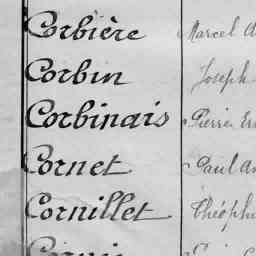 Corbière Marcel
Corbin Joseph
Corbinais Pierre
Cornet Paul
Cornillet